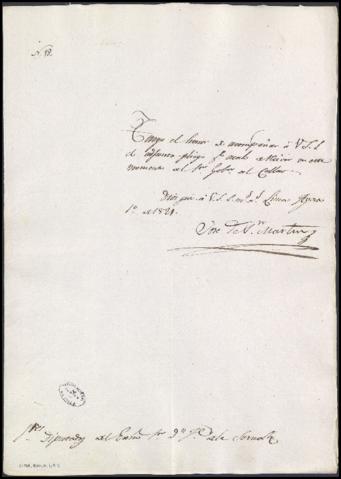 N. 12.
Tengo el honor de acompañar à V.S.S.
el adjunto pliego q.e acabo de recivir en este
momento del S.or Gob.r del Callao.
Dios gue. à V.S.S. m.s a.s Lima Agosto
1.º de 1821.
José de S.n Martin
S.res Diputados del Exmo S.or D.n J.e de la Serna